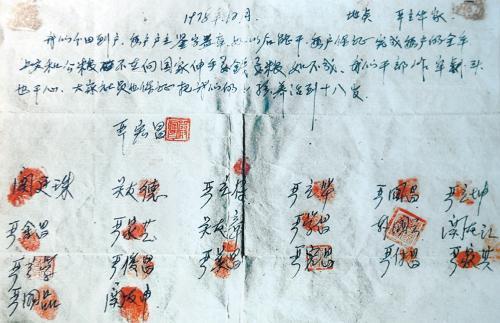 1978年12月. 地点 严立华家
我们分田到户,每户户主签字盖章,如以后能干,每户保证完成每户的全年
上交和公粮 不在向国家伸手要钱要粮,如不成,我们干部作牢刹头
也干心,大家社员也保证把我们的小孩养活到十八岁。
严宏昌
关廷珠 关友德 严立符 严立华 严国昌 严立坤
严金昌 严家芝 关友章 严学昌 韩国云 关友江
严立学 严俊昌 严美昌 严宏昌 严付昌 严家其
严国品 关友申